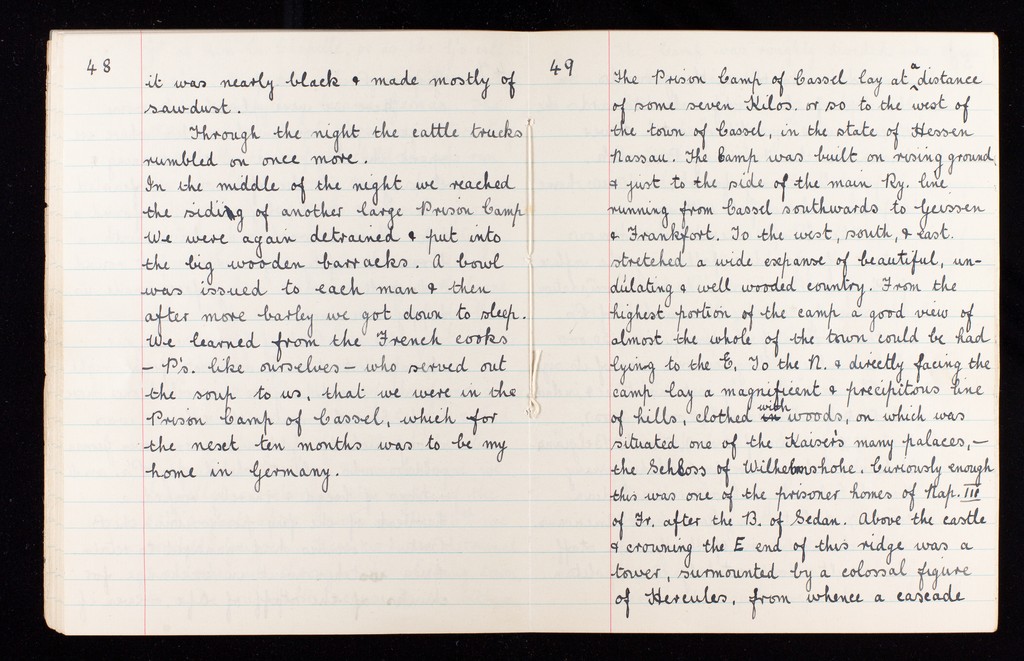 48
it was nearly black & made mostly of
sawdust.
Through the night the cattle trucks
rumbled on once more.
In the middle of the night we reached
the siding of another large Prison Camp
We were again detrained & put into
the big wooden barracks. A bowl
was issued to each man & then
after more barley we got down to sleep.
We learned from the French cooks
– P's. like ourselves – who served out
the soup to us, that we were in the
Prison Camp of Cassel, which for
the next ten months was to be my
home in Germany.
49
The Prison Camp of Cassel lay at a distance
of some seven Kilos. or so to the west of
the town of Cassel, in the state of Hessen
Nassau. The Camp was built on rising ground
& just to the side of the main Ry. line
running from Cassel southwards to Geissen
& Frankfort. To the west, south, & east.
stretched a wide expanse of beautiful, un-
dulating & well wooded country. From the
highest portion of the camp a good view of
almost the whole of the town could be had
lying to the E. To the N. & directly facing the
camp lay a magnificent & precipitous line
of hills, clothed in with woods, on which was
situated one of the Kaiser's many palaces, –
the Schloss of Wilhelmshohe. Curiously enough
this was one of the prisoner homes of Nap. III
of Fr. after the B. of Sedan. Above the castle
& crowning the E end of this ridge was a
tower, surmounted by a colossal figure
of Hercules, from whence a cascade